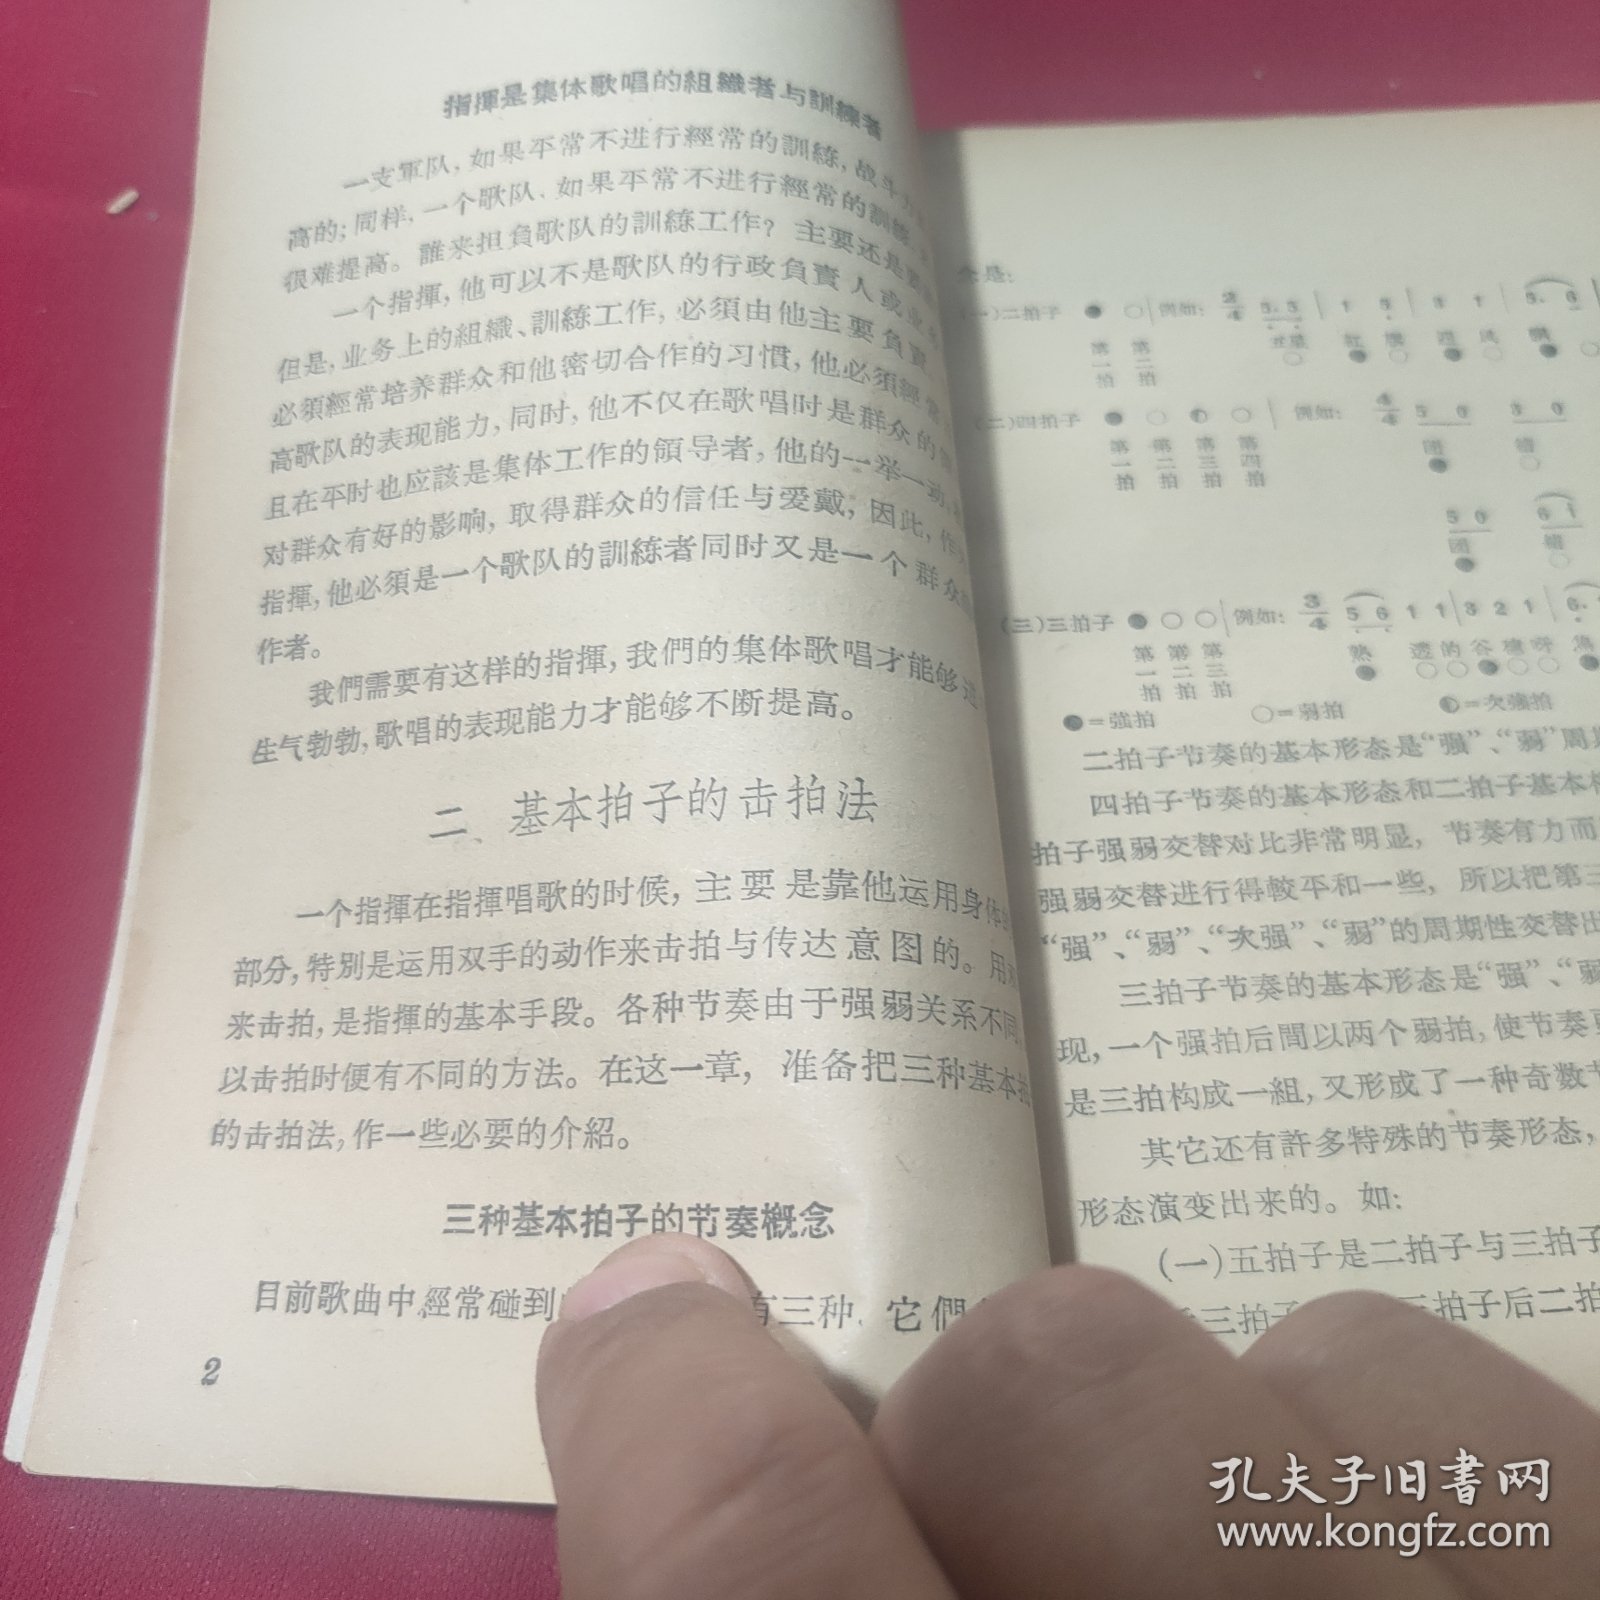 指揮是集体歌唱的組織者与訓練者
一支軍队,如果平常不进行經常的訓練,战斗力
高的;同样,一个歌队,如果平常不进行經常的訓練,
很难提高。誰来担負歌队的訓練工作?主要还是
一个指揮,他可以不是歌队的行政負責人或业
但是,业务上的組織、訓練工作,必須由他主要負責,
必須經常培养群众和他密切合作的习慣,他必須經常
高歌队的表现能力,同时,他不仅在歌唱时是群众的
且在平时也应該是集体工作的領导者,他的一举一动,
对群众有好的影响,取得群众的信任与爱戴,因此,作
指揮,他必須是一个歌队的訓練者同时又是一个群众
作者。
我們需要有这样的指揮,我們的集体歌唱才能够
生气勃勃,歌唱的表现能力才能够不断提高。
二、基本拍子的击拍法
一个指揮在指揮唱歌的时候,主要是靠他运用身体
部分,特別是运用双手的动作来击拍与传达意图的。用
来击拍,是指揮的基本手段。各种节奏由于强弱关系不同
以击拍时便有不同的方法。在这一章,准备把三种基本拍
的击拍法,作一些必要的介紹。
三种基本拍子的节奏概念
目前歌曲中經常碰到 有三种,它們
2
是:
(一)二拍子 ● ○ 例如: 2/4
第一拍 第二拍
(二)四拍子 ● ○ ◐ ○ 例如: 4/4 5 0 3 0
第一拍 第二拍 第三拍 第四拍
团
5 0 6 1
团
(三)三拍子 ● ○ ○ 例如: 3/4 5 6 1 1 3 2 1 6.
第一拍 第二拍 第三拍
熟 透的谷穗呀
●=強拍 ○=弱拍 ◐=次強拍
二拍子节奏的基本形态是“强”、“弱”周
四拍子节奏的基本形态和二拍子基本
拍子强弱交替对比非常明显,节奏有力而
强弱交替进行得較平和一些,所以把第三
“强”、“弱”、“次强”、“弱”的周期性交替出
三拍子节奏的基本形态是“强”、“弱
现,一个强拍后間以两个弱拍,使节奏
是三拍构成一組,又形成了一种奇数节
其它还有許多特殊的节奏形态,
形态演变出来的。如:
(一)五拍子是二拍子与三拍子
三拍子 三拍子后二拍
孔夫子旧書网
www.kongfz.com